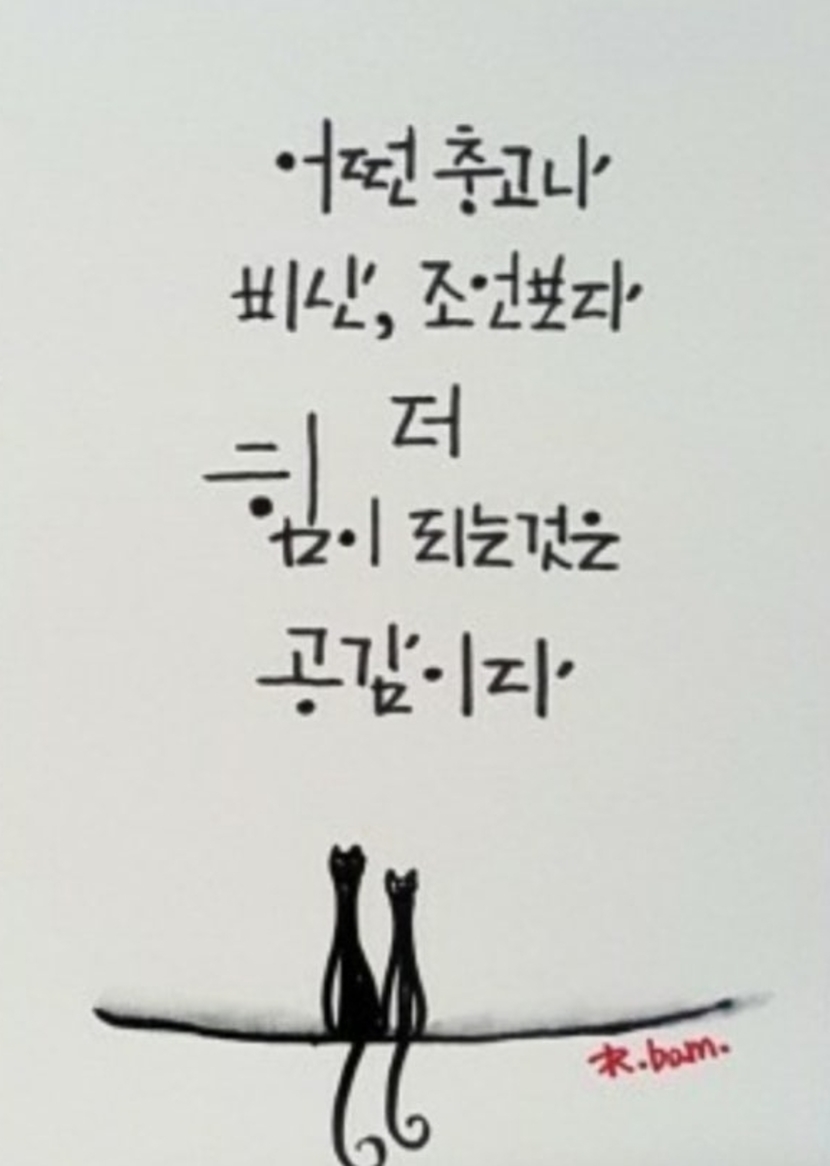 어떤 충고나
비난, 조언보다
더
힘이 되는것은
공감이다